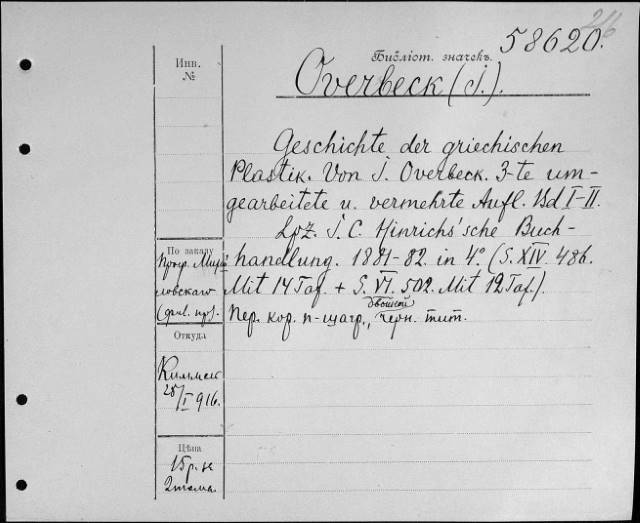 216
58620.
Инв.
№
Библіот. значекъ.
Overbeck (J.).
Geschichte der griechischen
Plastik. Von J. Overbeck. 3-te um-
gearbeitete u. vermehrte Aufl. Bd I-II.
Lpz. J. C. Hinrichs'sche Buch-
handlung. 1881-82. in 4°. (S. XIV. 486.
Mit 14 Taf. + S. VI. 502. Mit 12 Taf.).
Пер. кор. п-шагр., двойной черн. тит.
По заказу
Проф.
ловскаго
Откуда
25/I 916.
Цѣна
15 р. за
2 тома.